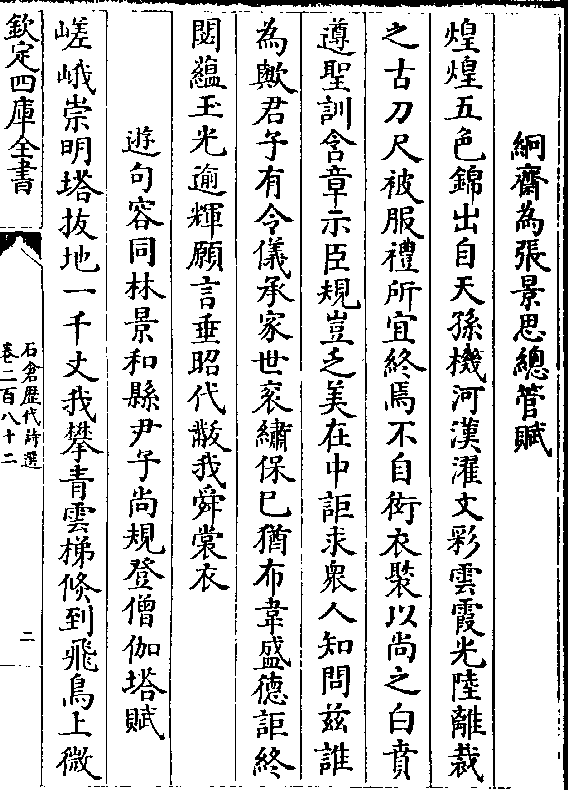 絅齋為張景思總管賦
煌煌五色錦出自天孫機河漢濯文彩雲霞光陸離裁
之古刀尺被服禮所宜終焉不自衒衣褧以尚之白賁
遵聖訓含章示臣規豈乏美在中詎求衆人知問兹誰
為歟君子有令儀承家世衮繡保已猶布韋盛德詎終
閟藴玉光逾輝願言垂昭代黻我舜裳衣
遊句容同林景和縣尹子尚規登僧伽塔賦
嵯峨崇明塔拔地一千丈我攀青雲梯倐到飛鳥上微
欽定四庫全書
石倉歷代詩選
卷二百八十二
二